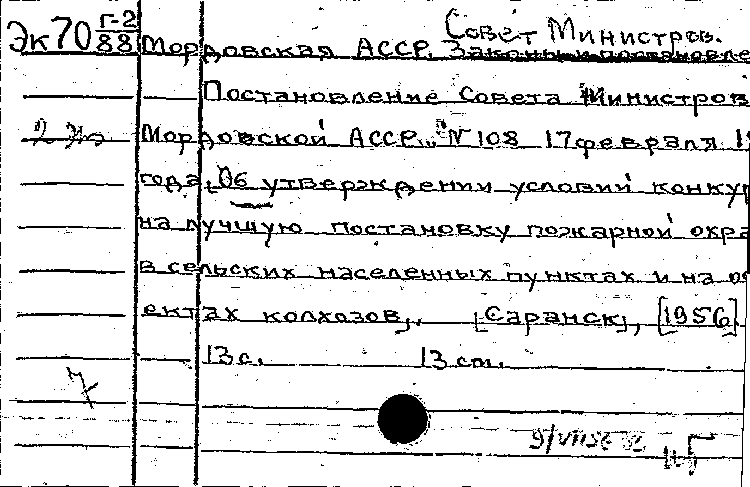 Эк70 Г-2
88
Совет Министров.
Мордовская АССР. Законы и постановле
Постановление Совета Министров
Мордовской АССР... №108 17 февраля 1
года. Об утверждении условий конкур
на лучшую постановку пожарной охра
в сельских населенных пунктах и на об
ектах колхозов,. [Саранск], [1956]
13с. 13 см.
7
9/VII56